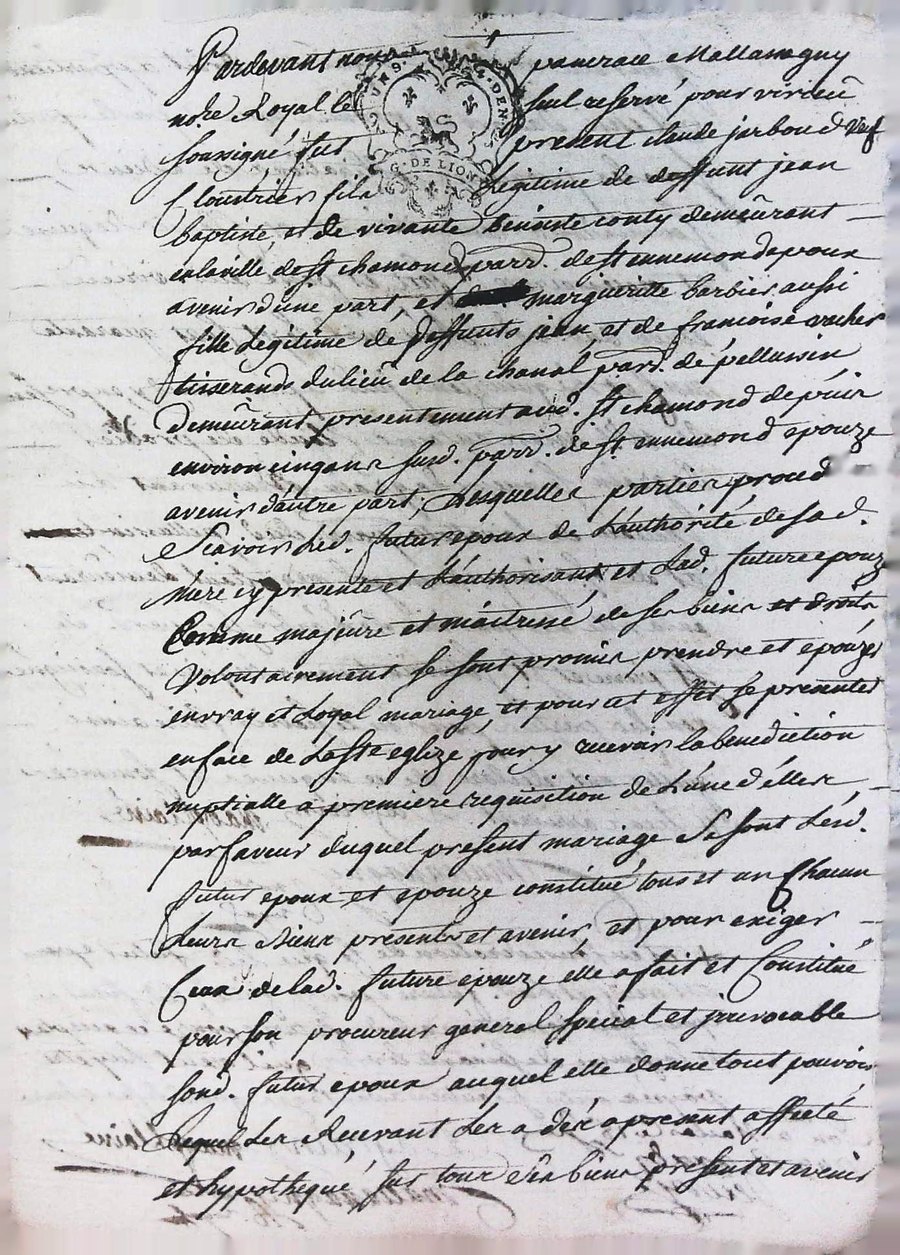 Pardevant nous pancrace Mallassagny
no.re Royal le seul reservé pour virieu
soussigné fut present claude jarboud veuf
Cloutrier fils légitime de deffunt jean
baptiste, et de vivante benoiste conty demeurant
en la ville de st chamond parr. de st ennemond epoux
avenir d'une part, et marguerite barbier aussi
fille Legitime de deffunts jean, et de francoise vacher
tisserands du lieu de la chanal parr. de pellussin
demeurant presentement aud. st chamond depuis
environ cinq ans susd. parr. de st ennemond epouze
avenir d'autre part; Lesquelles parties proced
Scavoir Led. futur epoux de L'authorité de sad.
Mere cy presente et L'authorisant et Lad. future epouze
Comme majeure et maitresse de ses biens et droits
Volontairement se sont promis prendre et epouzer
en vray et Loyal mariage, et pour cet effet se presenter
en face de La Ste eglize pour y recevoir la benediction
nuptialle a premiere requisition de L'une d'elles
par faveur duquel present mariage Se sont Lesd.
futur epoux et epouze constitué tous et un Chacun
Leurs Biens presents et avenir, et pour exiger
Ceux de lad. future epouze elle a fait et Constitué
pour son procureur general special et irrevocable
sond. futur epoux auquel elle donne tout pouvoir
Lequel Les Recevant Les a dés apresent affecté
et hypothequé sur tous ses biens present et avenir
G. DE LION